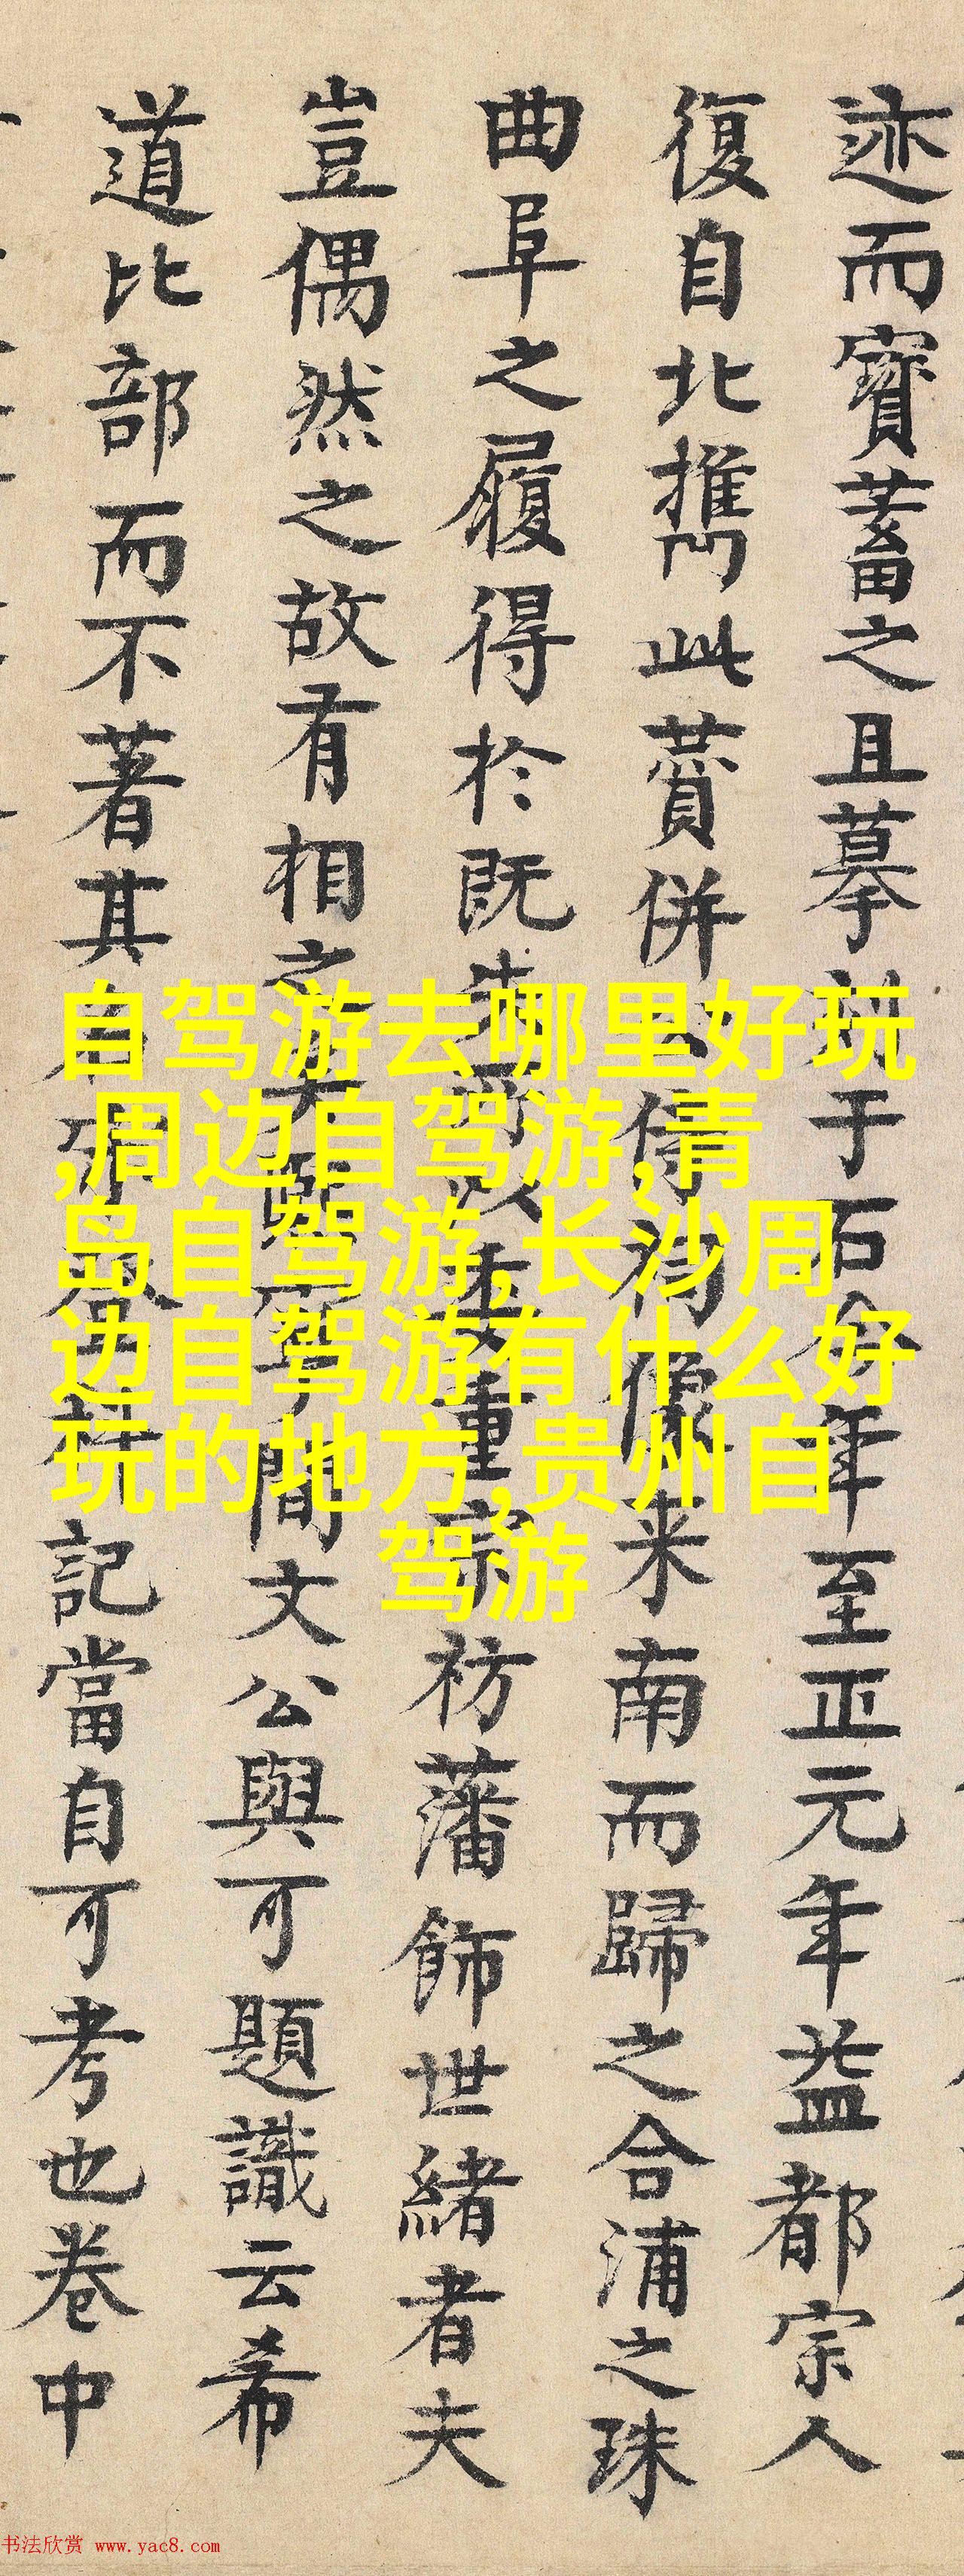 迹而寳蓄之且摹刻于石今年至正元年益都宗人
復自北携此賛併公侍祠像来南而歸之合浦之珠
曲阜之履得於既失所以委重宗祊藩飾世緒者夫
豈偶然之故有相之矣熙寧間文公與可題識云希
道比部而不著其自可考也卷中
自驾游去哪里好玩
,周边自驾游,青
岛自驾游,长沙周
边自驾游有什么好
玩的地方,贵州自
驾游
书法欣赏 www.yac8.com